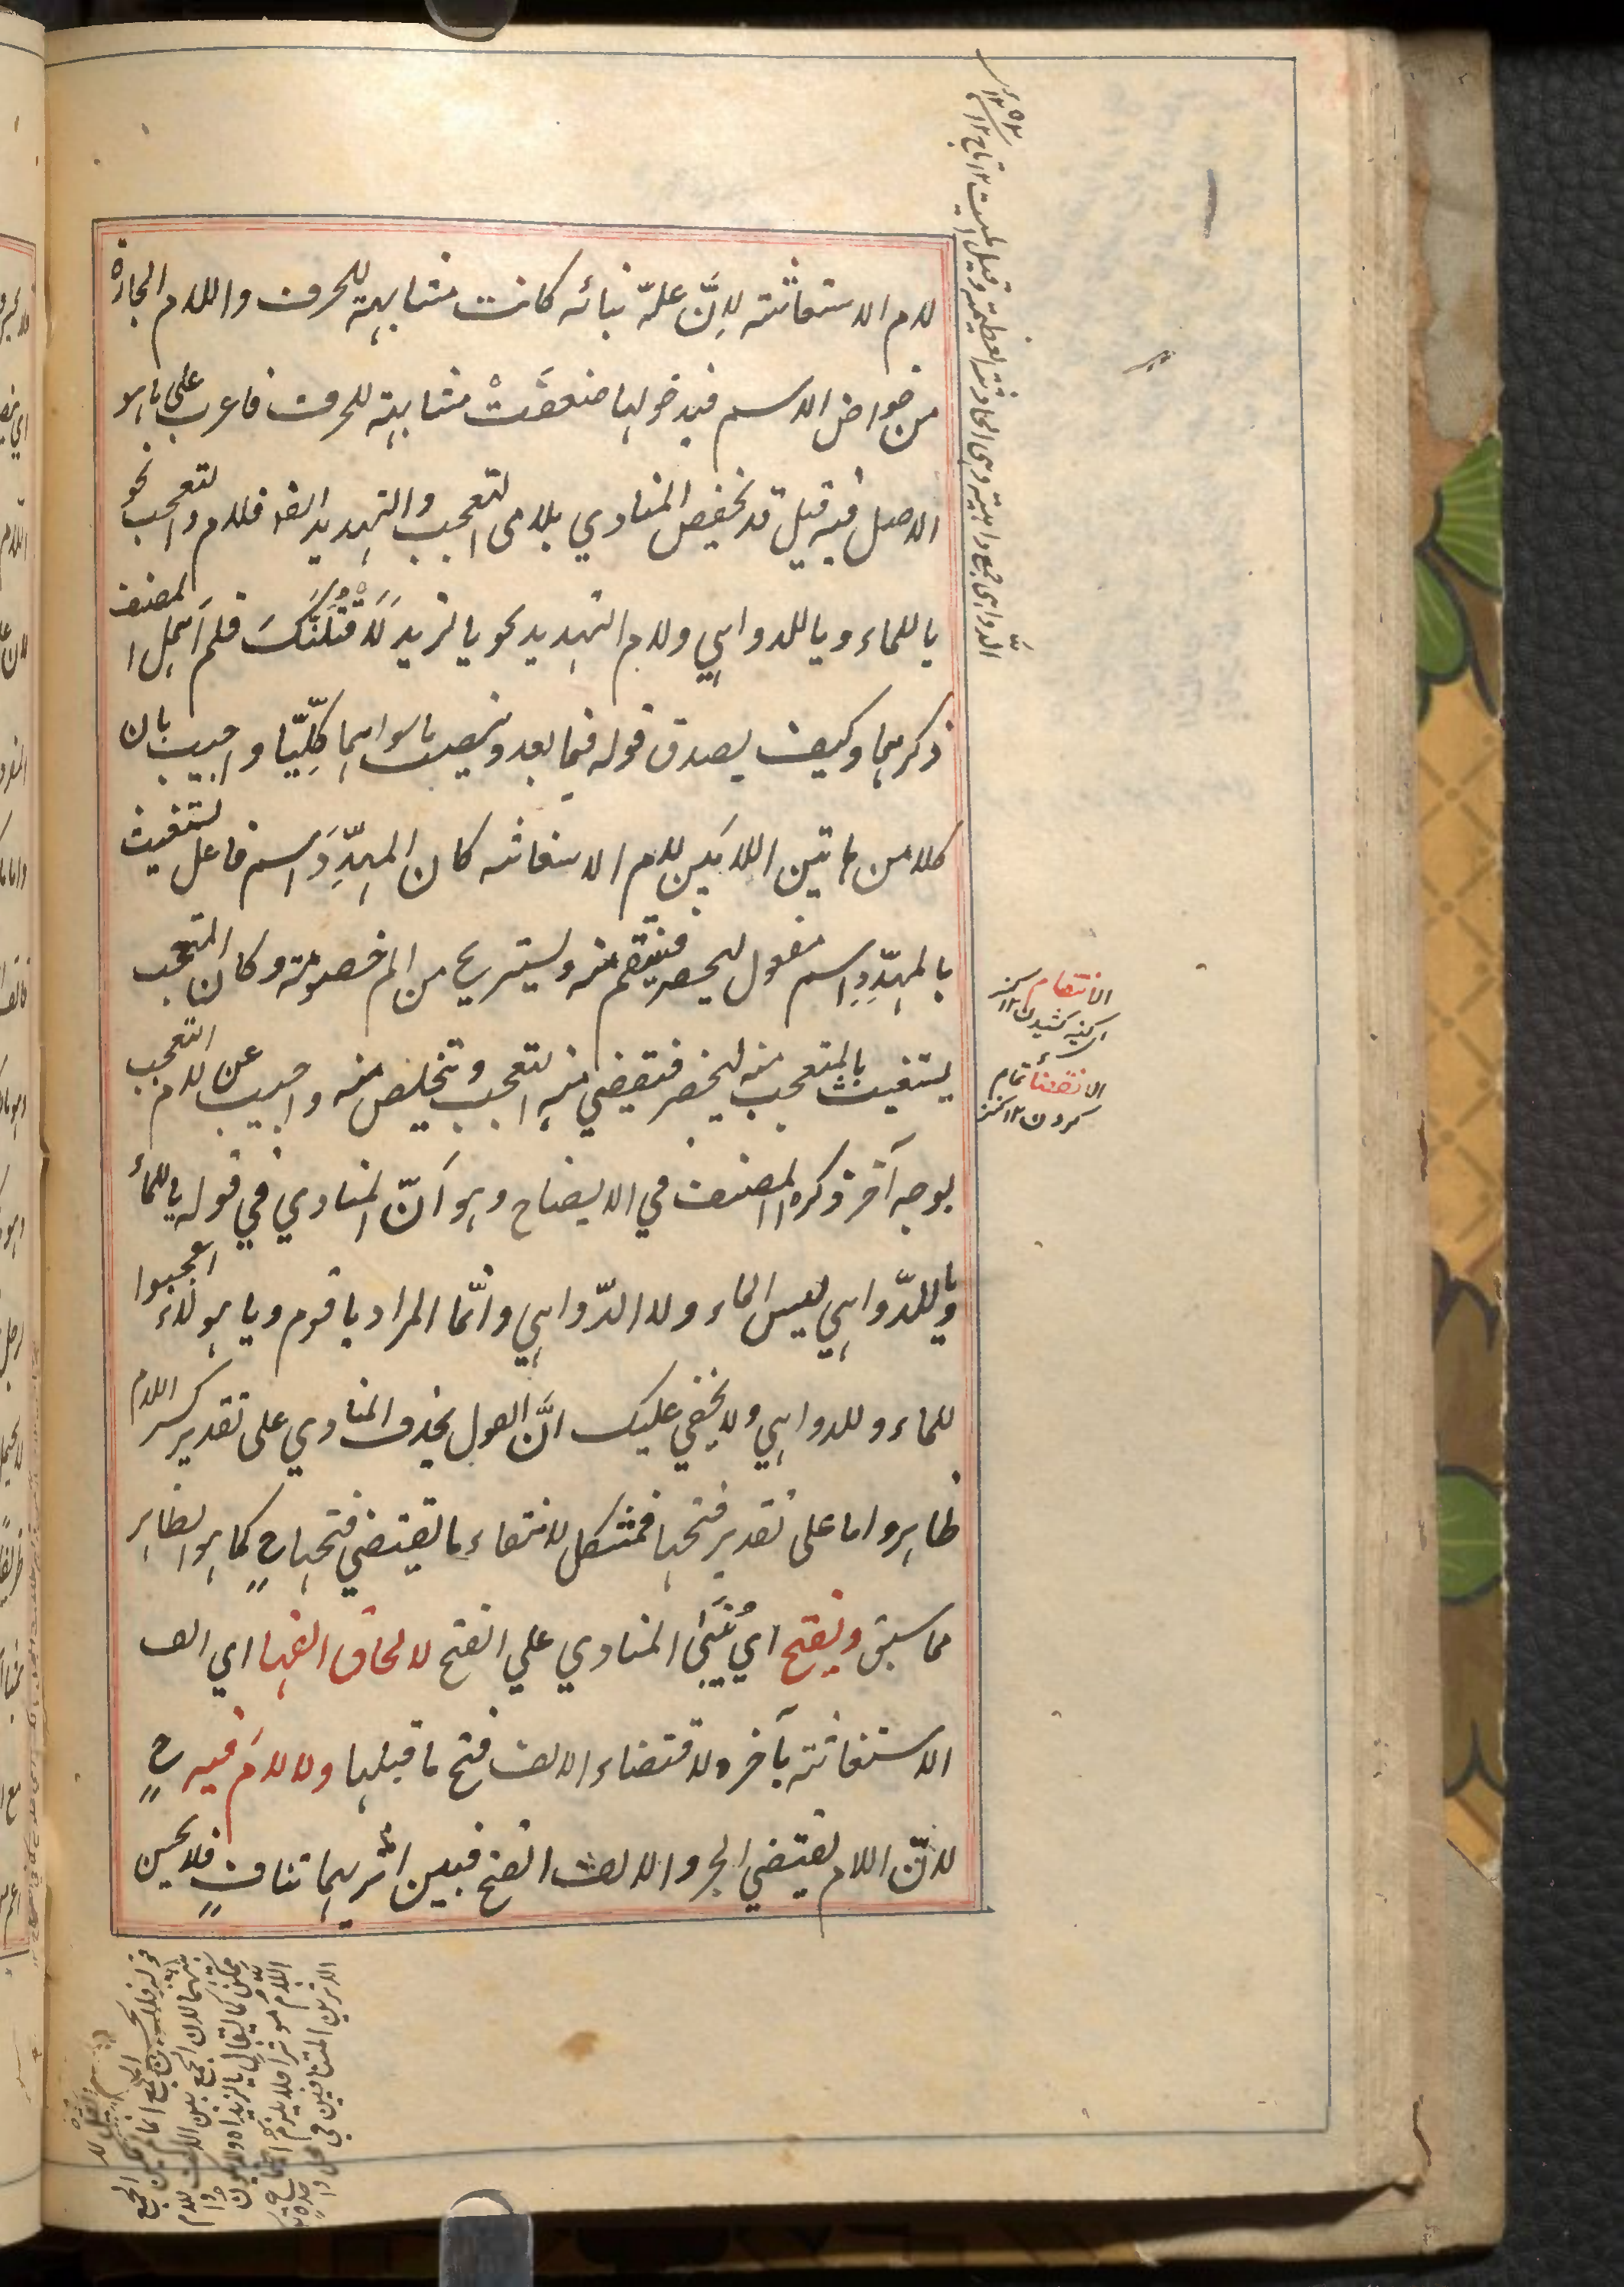 لام الاستغاثة لانَّ علّة بنائه كانت مشابهته للحرف واللام الجارة
من خواص الاسم فبدخولها ضعفَتْ مشابهته للحرف فاعرب على ما هو
الاصل فيه قيل قد يخفض المنادي بلامي التعجب والتهديد ايضا فلام التعجب نحو
يا للماء ويا للدواهي ولام التهديد نحو يا لزيد لَاَقْتُلَنَّكَ فلم اَهمل المصنف
ذكرهما وكيف يصدق قوله فيما بعد وينصب ما سواهما كلّيّا واجيب بان
كلا من هاتين اللامَين لام الاستغاثه كان المهدِّدَ اسم فاعل يستغيث
بالمهدَّدِ اسم مفعول ليحضر فينتقم منه ويستريح من الم خصومته وكان المتعجب
يستغيث بالمتعجب منه ليحضر فيقضي منه التعجب ويتخلص منه واجيب عن لام التعجب
بوجه آخر ذكره المصنف في الايضاح وهو اَنّ المنادي في قولهم يا للماء
ويا للدّواهي ليس الماء ولا الدّواهي وانّما المراد يا قوم ويا هؤلاء اعجبوا
للماء وللدواهي ولا يخفي عليك انَّ القول بحذف المنادي على تقدير كسر اللام
ظاهر واما على تقدير فتحها فمشكل لانتفاء ما يقتضي فتحها ح كما هو الظاهر
مما سبق ويفتح اي يُبْنَى المنادي علي الفتح لالحاق الفها اي الف
الاستغاثة بآخره لاقتضاء الالف فتح ما قبلها ولا لامَ فيه ح
لانّ اللام يقتضي الجر والالف الفتح فبين اثريهما تناف فلا يحسن
الدّواهي جمع داهية وهي الحادثة العظيمة وقيل
الانتقام
كينه كشيدن ١٢
الانقضاء تمام
كردن ١٢ كنز
قوله فلا يحسن الجمع
بينهما لان الجمع بين